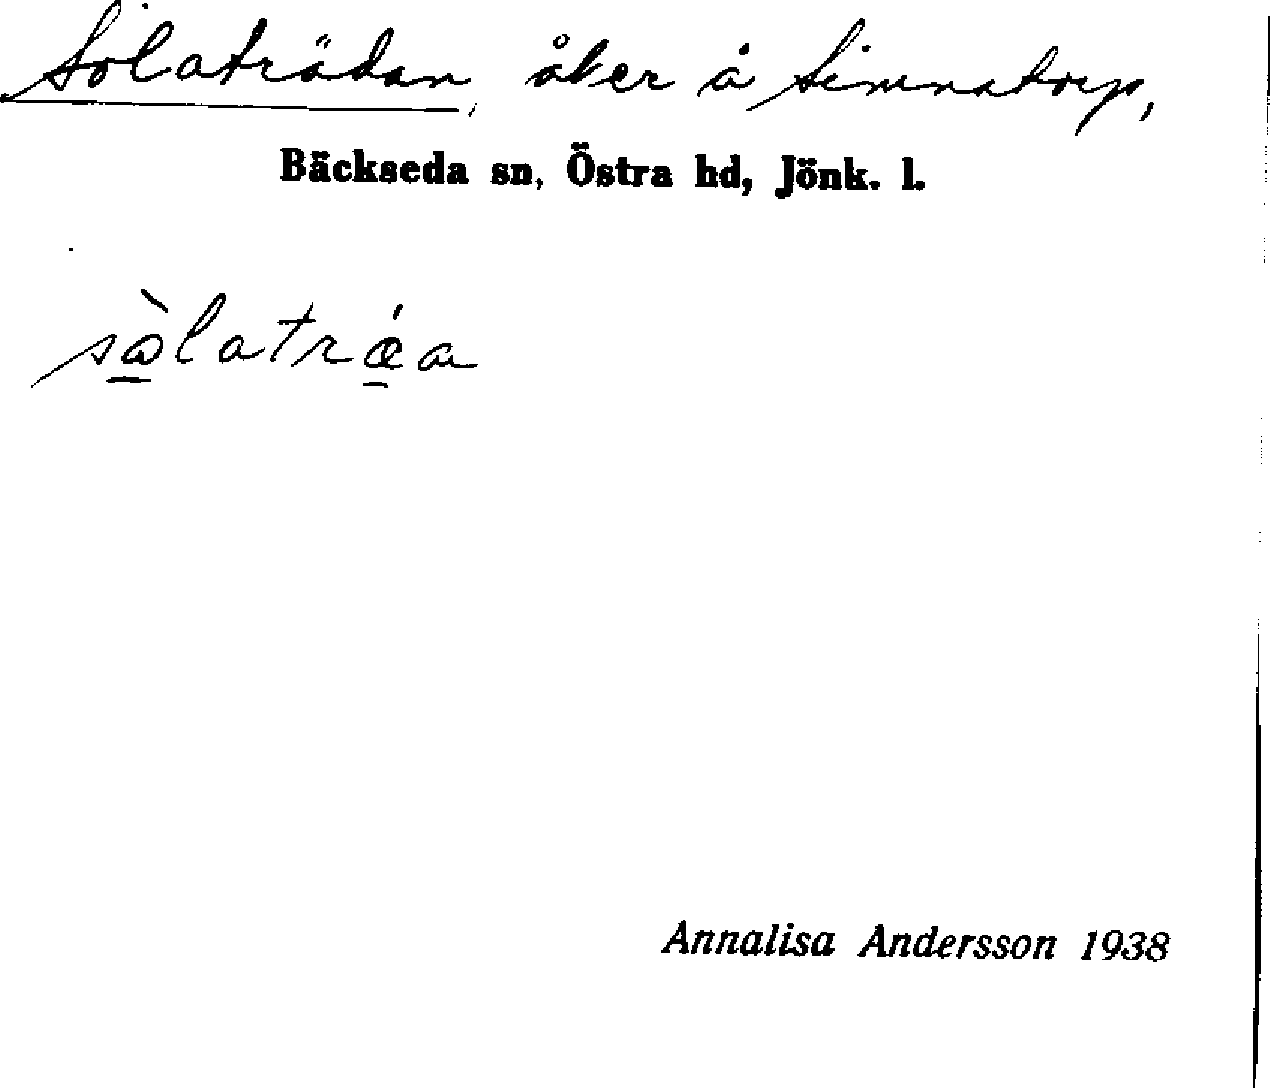 Solaträdan, åker å Simnatorp,
Bäckseda sn, Östra hd, Jönk. l.
sὼlatrǽa
Annalisa Andersson 1938